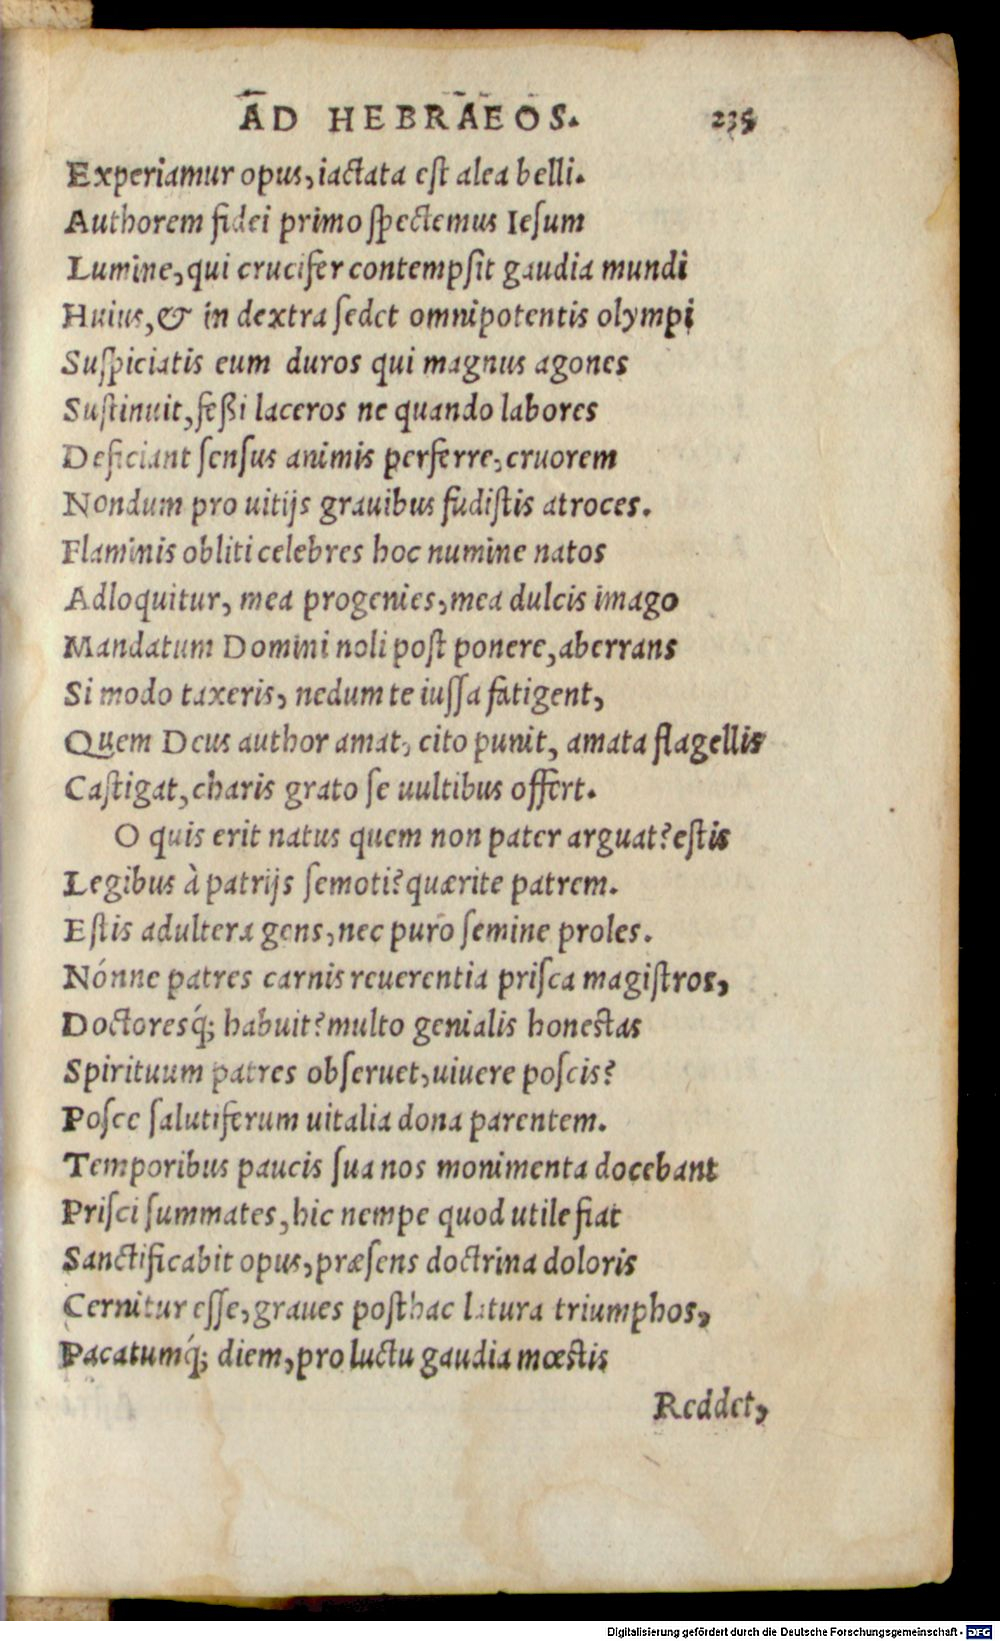 AD HEBRAEOS. 235
Experiamur opus, iactata est alea belli.
Authorem fidei primo spectemus Iesum
Lumine, qui crucifer contempsit gaudia mundi
Huius, & in dextra sedet omnipotentis olympi
Suspiciatis eum duros qui magnus agones
Sustinuit, feßi laceros ne quando labores
Deficiant sensus animis perferre, cruorem
Nondum pro uitijs grauibus fudistis atroces.
Flaminis obliti celebres hoc numine natos
Adloquitur, mea progenies, mea dulcis imago
Mandatum Domini noli post ponere, aberrans
Si modo taxeris, nedum te iussa fatigent,
Quem Deus author amat, cito punit, amata flagellis
Castigat, charis grato se uultibus offert.
O quis erit natus quem non pater arguat? estis
Legibus à patrijs semoti? quærite patrem.
Estis adultera gens, nec puro semine proles.
Nónne patres carnis reuerentia prisca magistros,
Doctoresq́; habuit? multo genialis honestas
Spirituum patres obseruet, uiuere poscis?
Posce salutiferum uitalia dona parentem.
Temporibus paucis sua nos monimenta docebant
Prisci summates, hic nempe quod utile fiat
Sanctificabit opus, præsens doctrina doloris
Cernitur esse, graues posthac latura triumphos,
Pacatumq́; diem, pro luctu gaudia mœstis
Reddet,
Digitalisierung gefördert durch die Deutsche Forschungsgemeinschaft - DFG